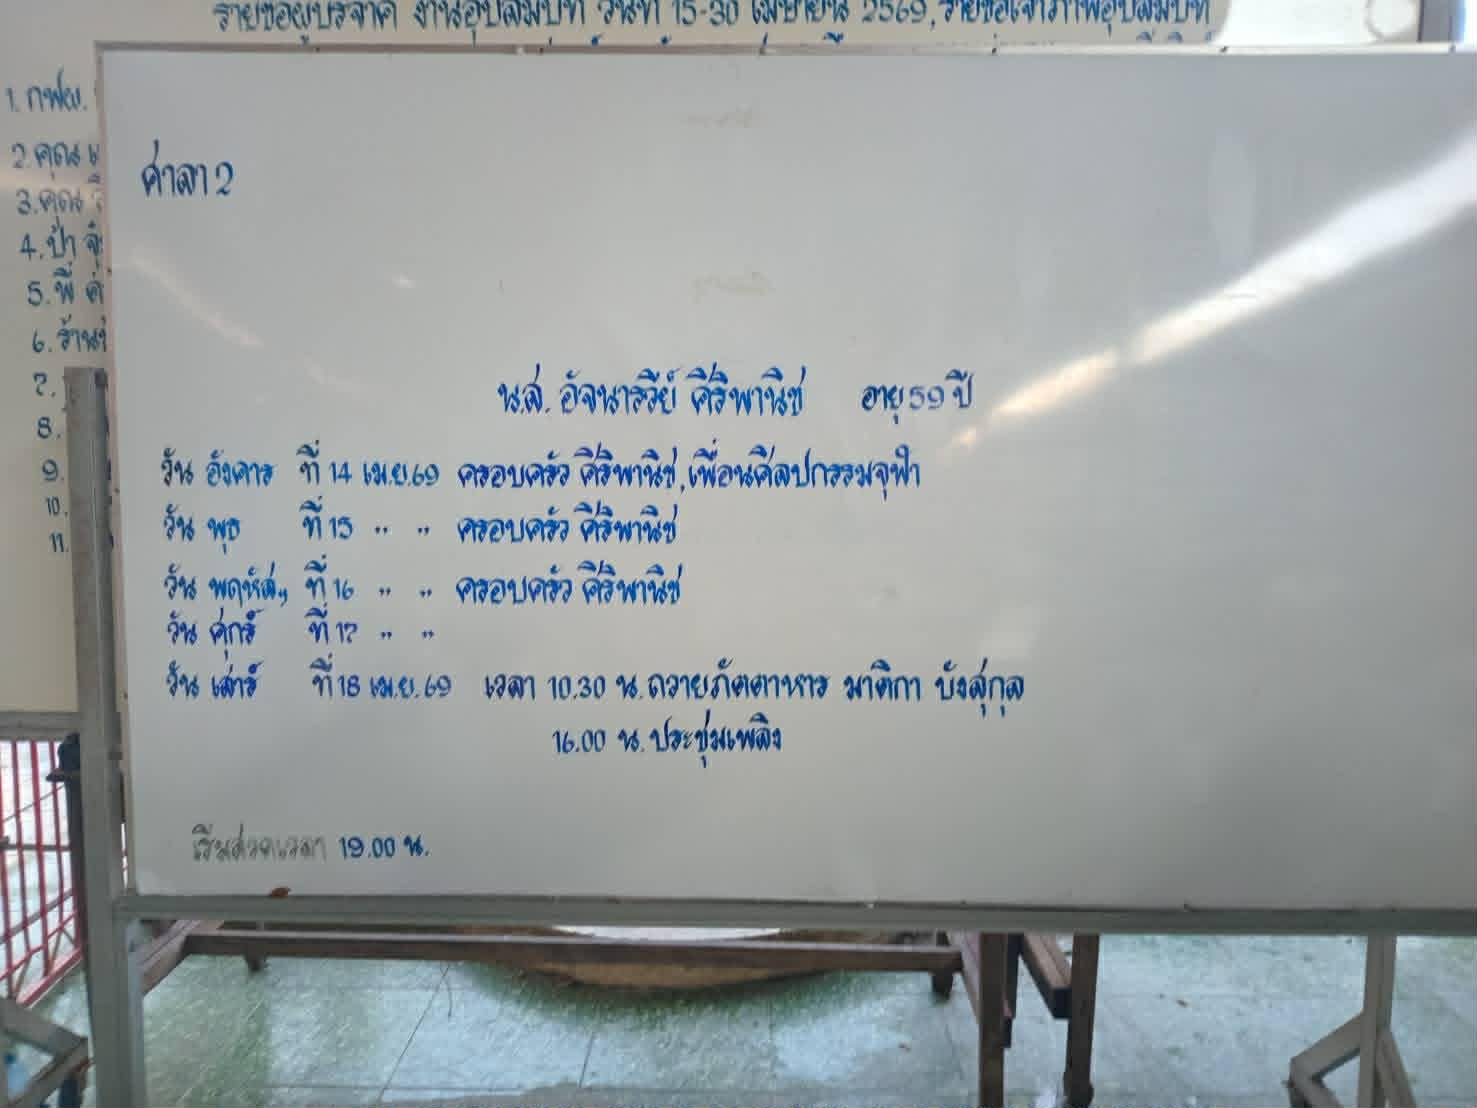 รายชื่อผู้บริจาค งานอุปสมบท วันที่ 15-30 เมษายน 2569, รายชื่อเจ้าภาพอุปสมบท
1. กฟผ.
2. คุณ
3. คุณ
4. ป้า
5. พี่
6. ร้าน
7.
8.
9.
10.
11.
ศาลา 2
น.ส. อัจนารวีย์ ศิริพานิช อายุ 59 ปี
วัน อังคาร ที่ 14 เม.ย. 69 ครอบครัว ศิริพานิช, เพื่อนศิลปกรรมจุฬา
วัน พุธ ที่ 15 " " ครอบครัว ศิริพานิช
วัน พฤหัสฯ ที่ 16 " " ครอบครัว ศิริพานิช
วัน ศุกร์ ที่ 17 " "
วัน เสาร์ ที่ 18 เม.ย. 69 เวลา 10.30 น. ถวายภัตตาหาร มาติกา บังสุกุล
16.00 น. ประชุมเพลิง
เริ่มสวดเวลา 19.00 น.